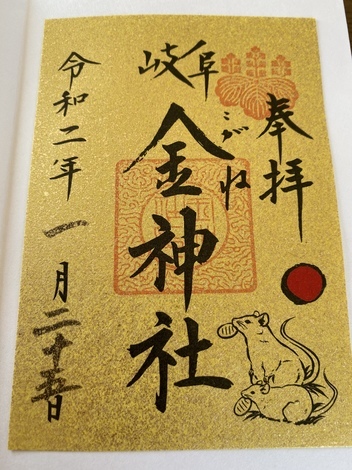 奉拝
岐阜
こがね
金神社
令和二年一月二十五日